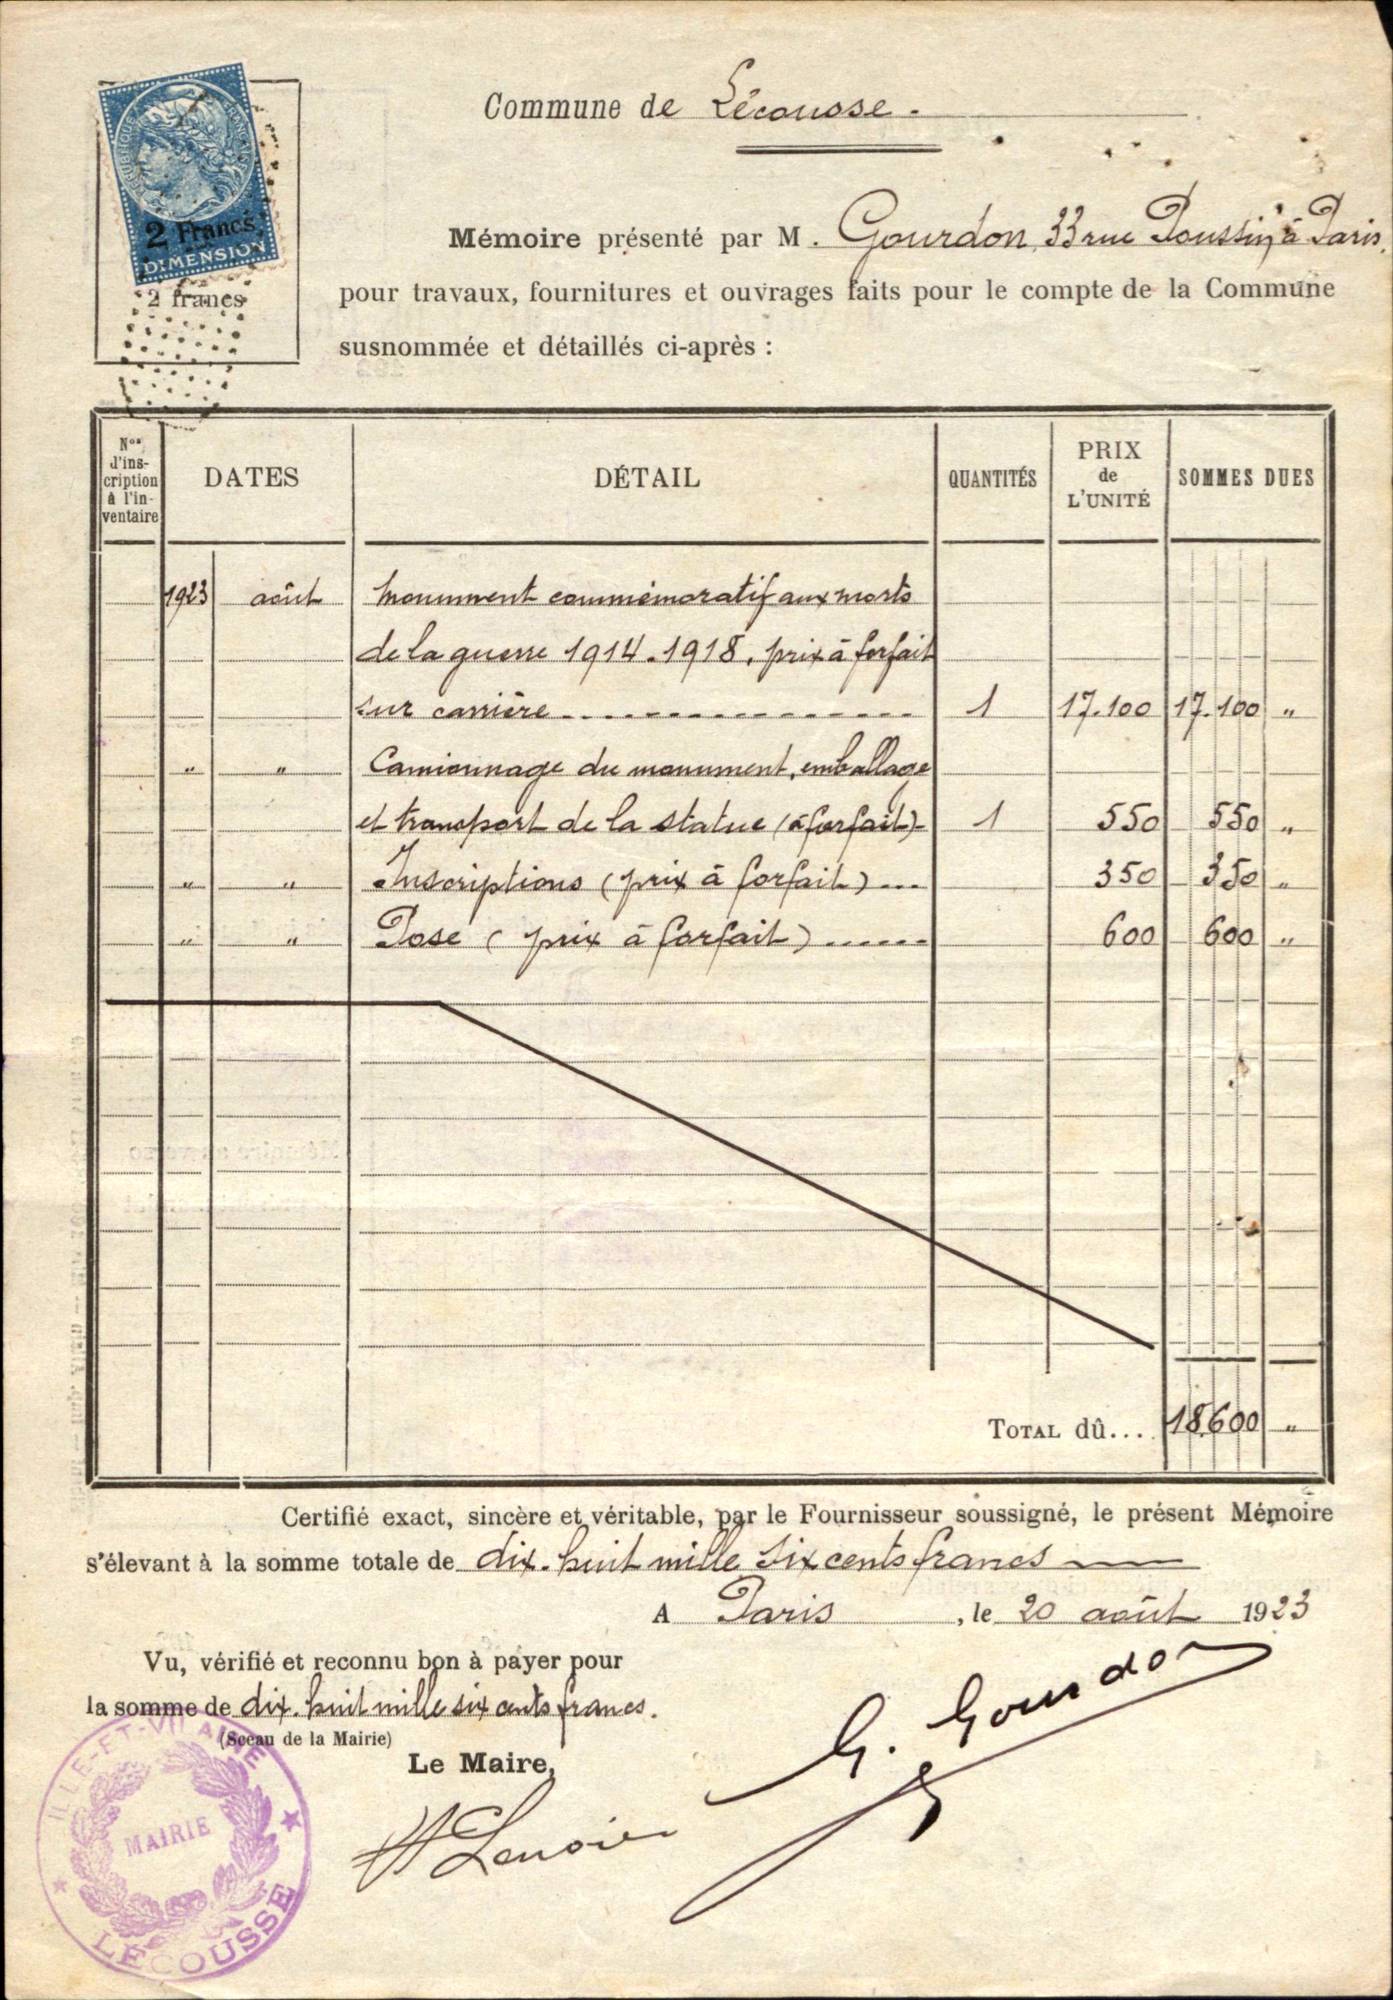 RÉPUBLIQUE FRANÇAISE
2 Francs
DIMENSION
2 francs
Commune de Lécousse.
Mémoire présenté par M. Gourdon, 33 rue Poussin, à Paris,
pour travaux, fournitures et ouvrages faits pour le compte de la Commune
susnommée et détaillés ci-après :
Nos d'ins-cription à l'in-ventaire DATES DÉTAIL QUANTITÉS PRIX de L'UNITÉ SOMMES DUES
1923 août Monument commémoratif aux morts
de la guerre 1914.1918, prix à forfait
sur carrière 1 17.100 17.100 "
" " Camionnage du monument, emballage
et transport de la statue (à forfait) 1 550 550 "
" " Inscriptions (prix à forfait) ... 350 350 "
" " Pose (prix à forfait) ...... 600 600 "
TOTAL dû... 18.600 "
Certifié exact, sincère et véritable, par le Fournisseur soussigné, le présent Mémoire
s'élevant à la somme totale de dix-huit mille six cents francs
A Paris, le 20 août 1923
Vu, vérifié et reconnu bon à payer pour
la somme de dix-huit mille six cents francs.
(Sceau de la Mairie)
Le Maire,
G. Gourdon
Lenoir
ILLE-ET-VILAINE
MAIRIE
LÉCOUSSE